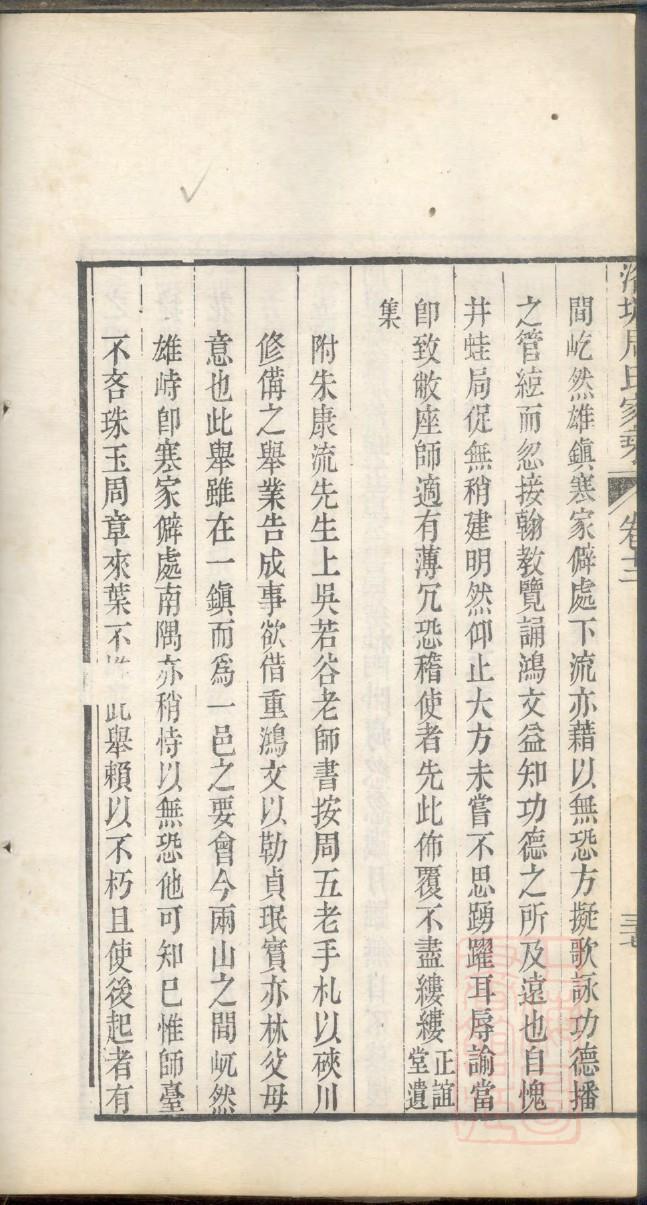 周氏家
卷十二
三七
間屹然雄鎮寒家僻處下流亦藉以無恐方擬歌詠功德播
之管絃而忽接翰教覽誦鴻文益知功德之所及遠也自愧
井蛙局促無稍建明然仰止大方未嘗不思踴躍耳辱諭當
卽致敝座師適有薄冗恐稽使者先此佈覆不盡縷縷正誼堂遺
集
附朱康流先生上吳若谷老師書按周五老手札以硤川
修備之舉業告成事欲借重鴻文以勒貞珉實亦林父母
意也此舉雖在一鎭而爲一邑之要會今兩山之間屼然
雄峙卽寒家僻處南隅亦稍恃以無恐他可知已惟師臺
不吝珠玉周章來葉不 此舉賴以不朽且使後起者有